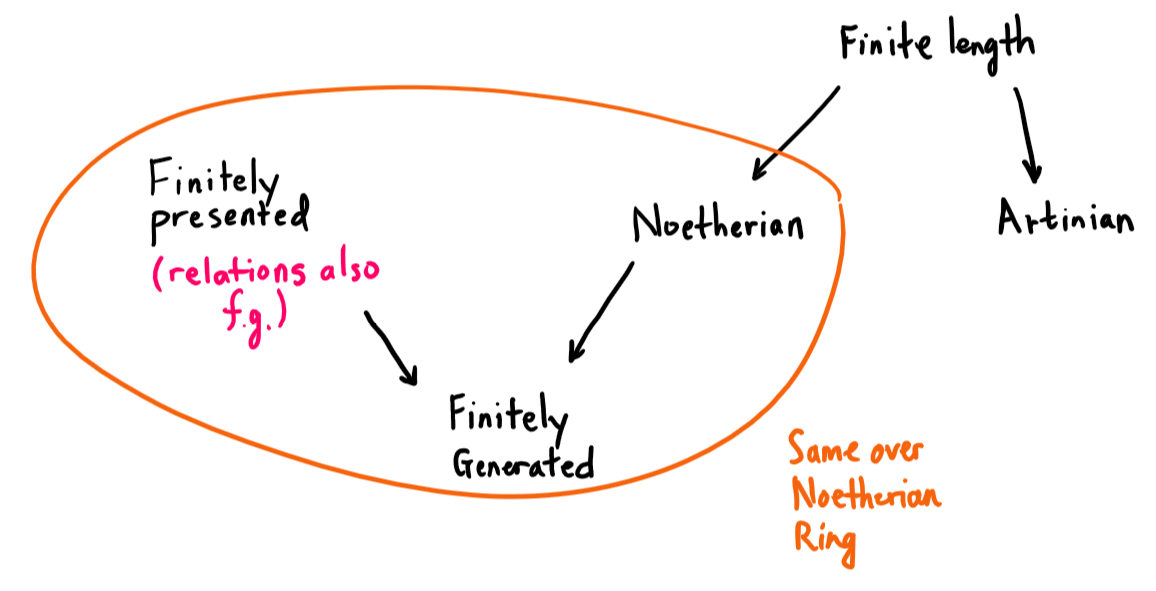 Finite length
Finitely
presented
(relations also
f.g.)
Noetherian
Artinian
Finitely
Generated
Same over
Noetherian
Ring